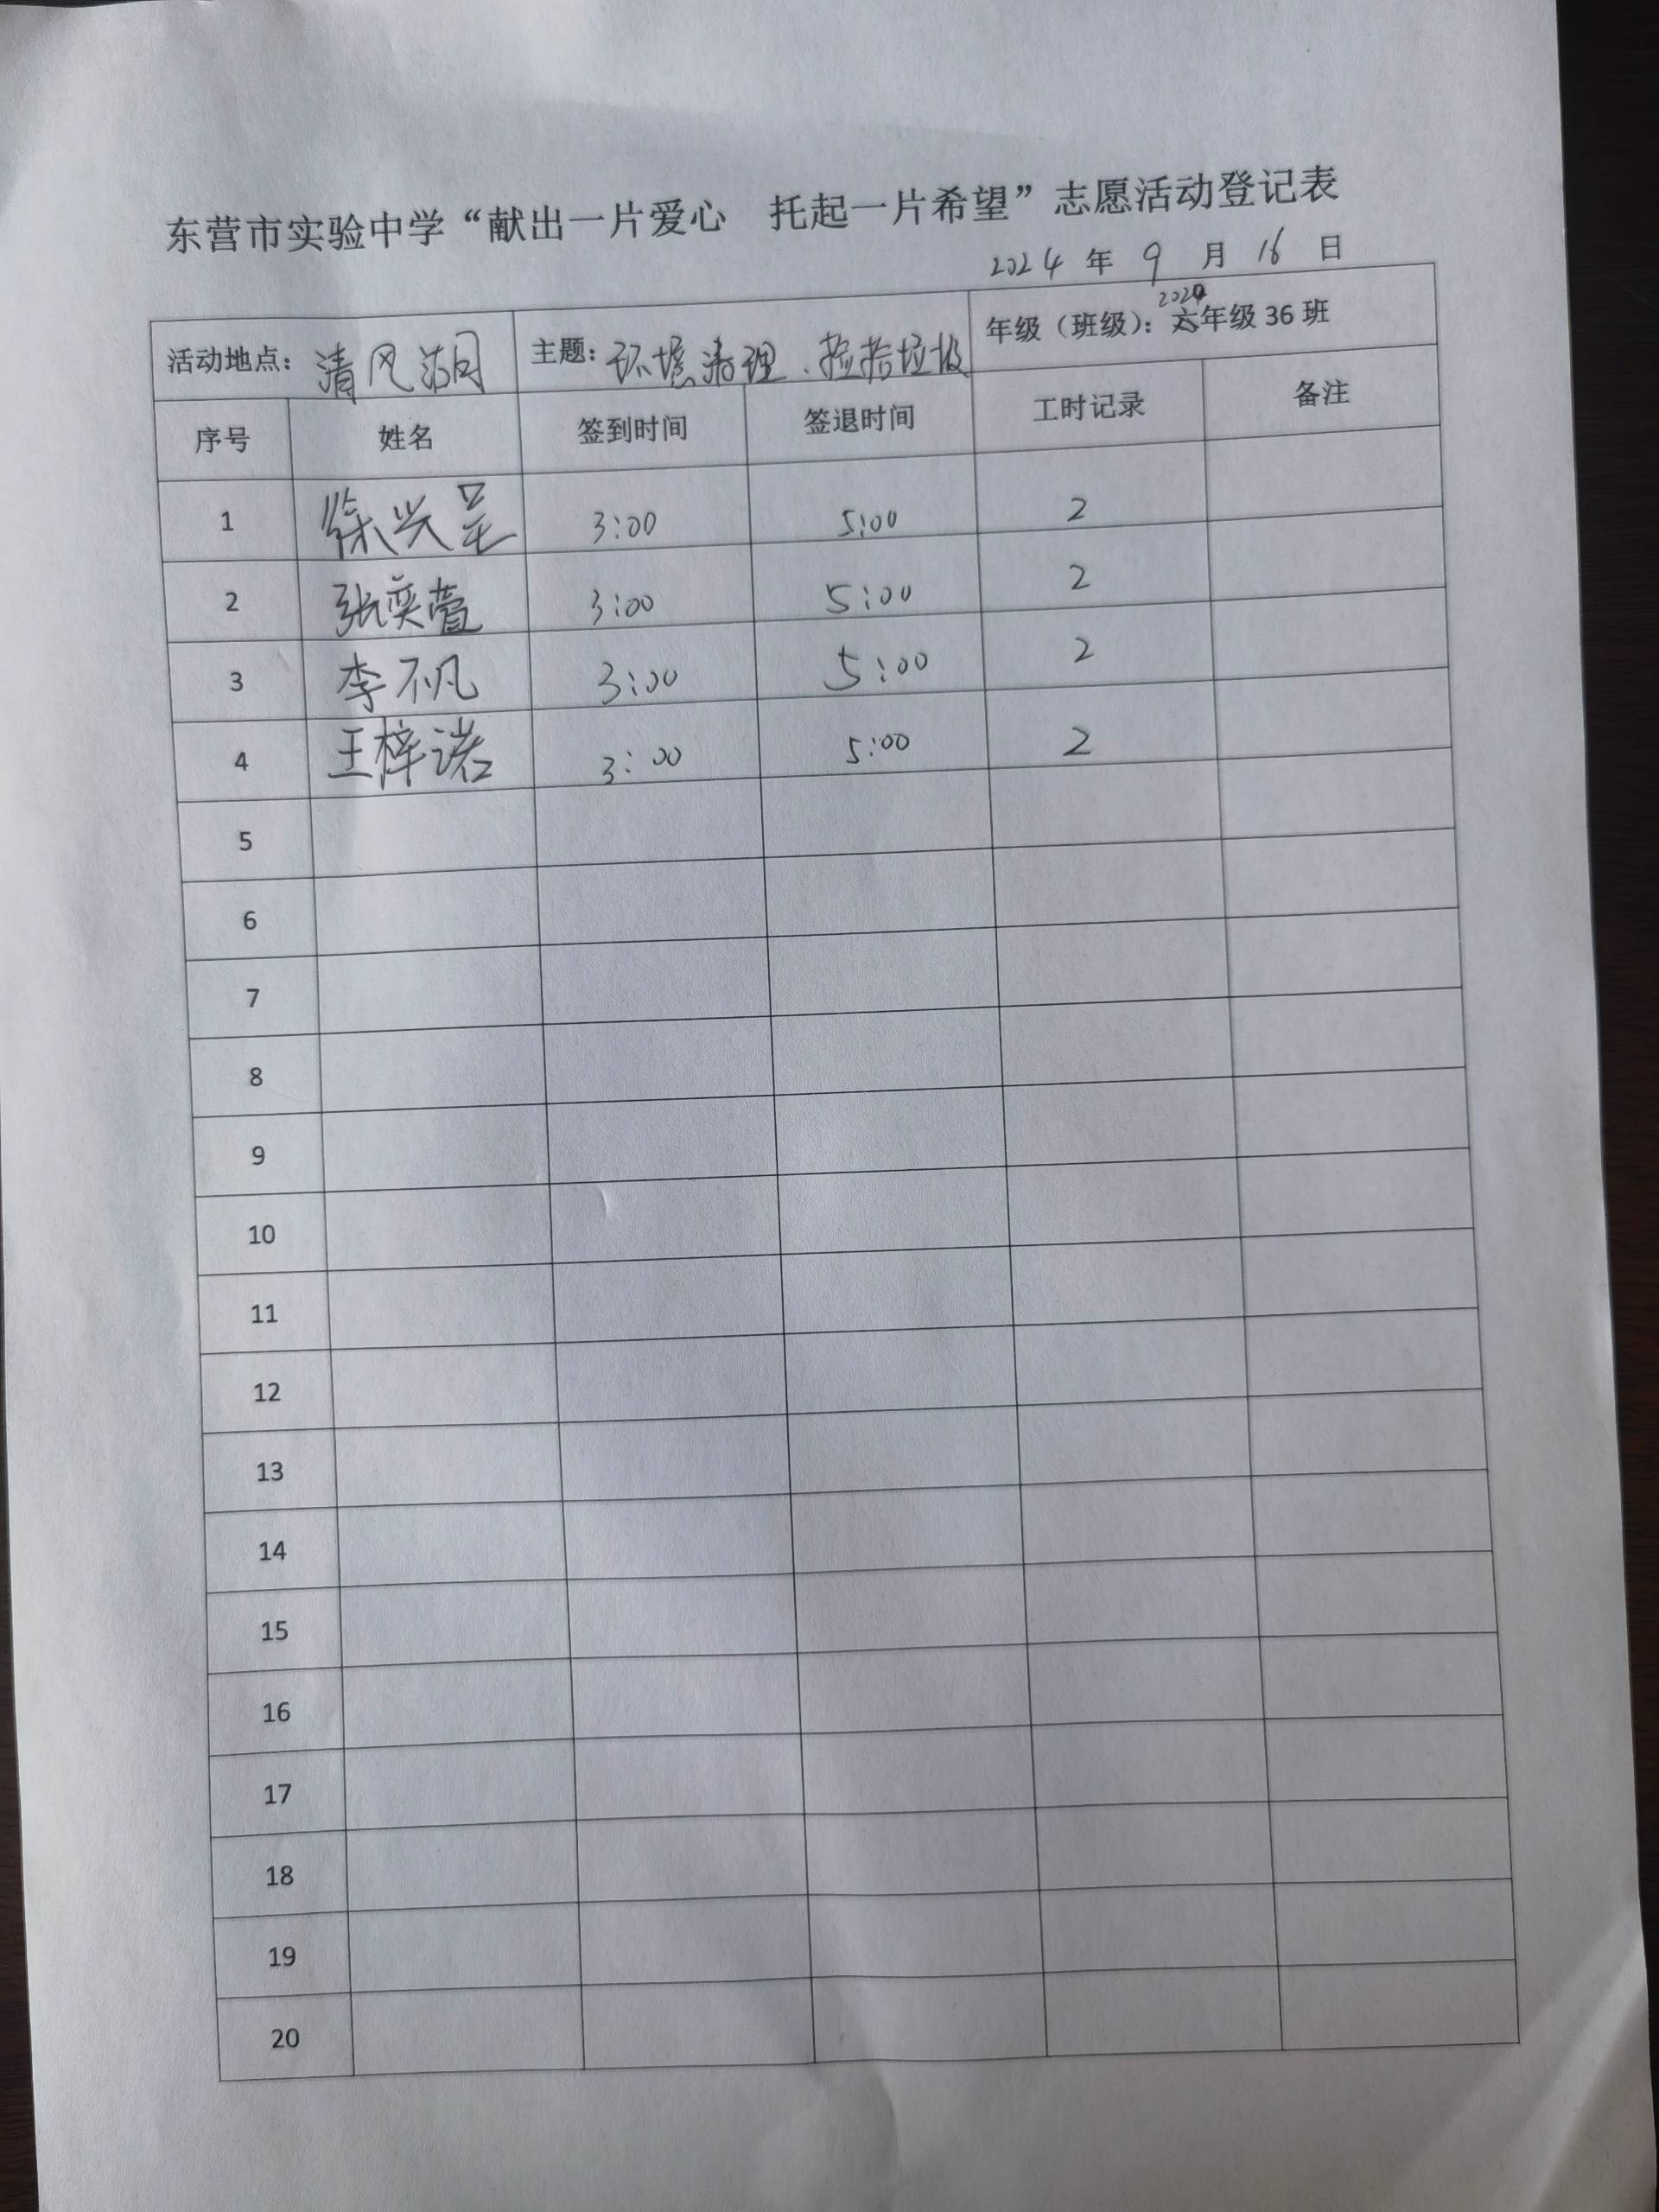 东营市实验中学“献出一片爱心 托起一片希望”志愿活动登记表
2024 年 9 月 16 日
活动地点：清风湖 主题：环境清理、捡拾垃圾 年级（班级）：2024年级 36 班
序号 姓名 签到时间 签退时间 工时记录 备注
1 徐兴 3:00 5:00 2
2 张奕萱 3:00 5:00 2
3 李不凡 3:00 5:00 2
4 王梓诺 3:00 5:00 2
5
6
7
8
9
10
11
12
13
14
15
16
17
18
19
20